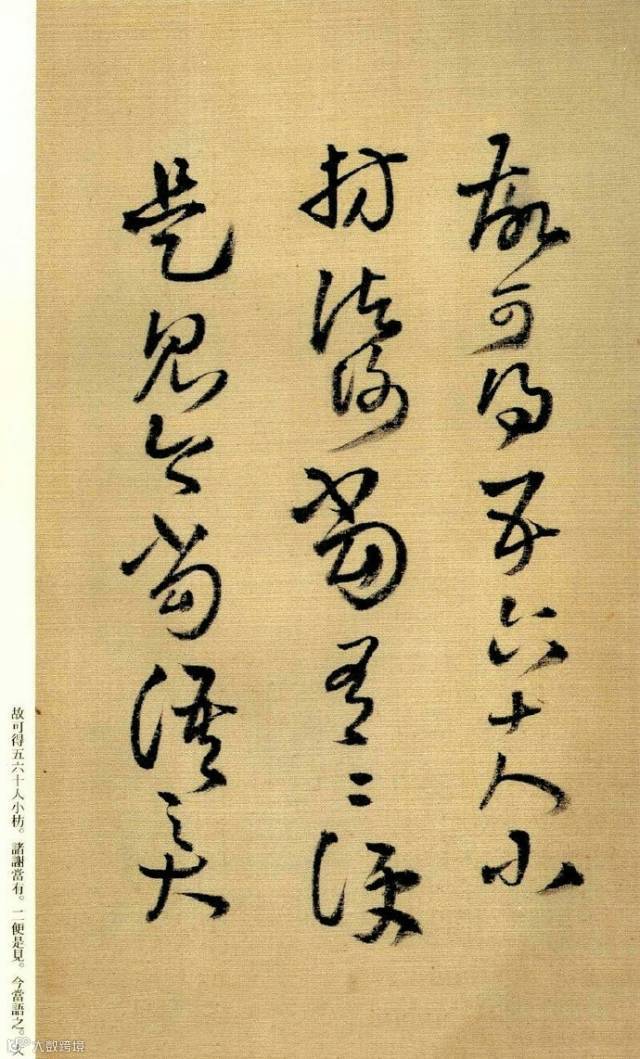 故可得五六十人小
枋諸謝當有二便
是見今當語之大
故可得五六十人小枋。諸謝當有。二便是見。今當語之。大
大数跨境